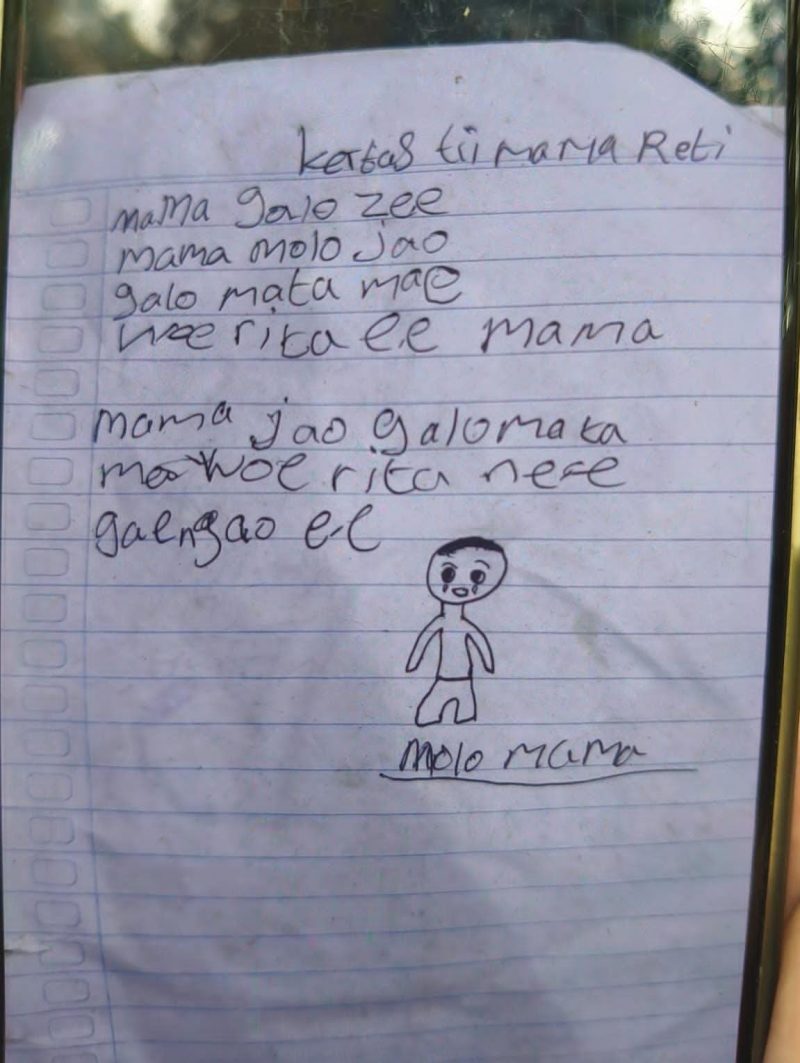 kertas tii mama Reti
mama galo zee
mama molo jao
galo mata mae
woe rita ee mama
mama jao galo mata
mae woe rita ne e e
gae ngao e e
molo mama